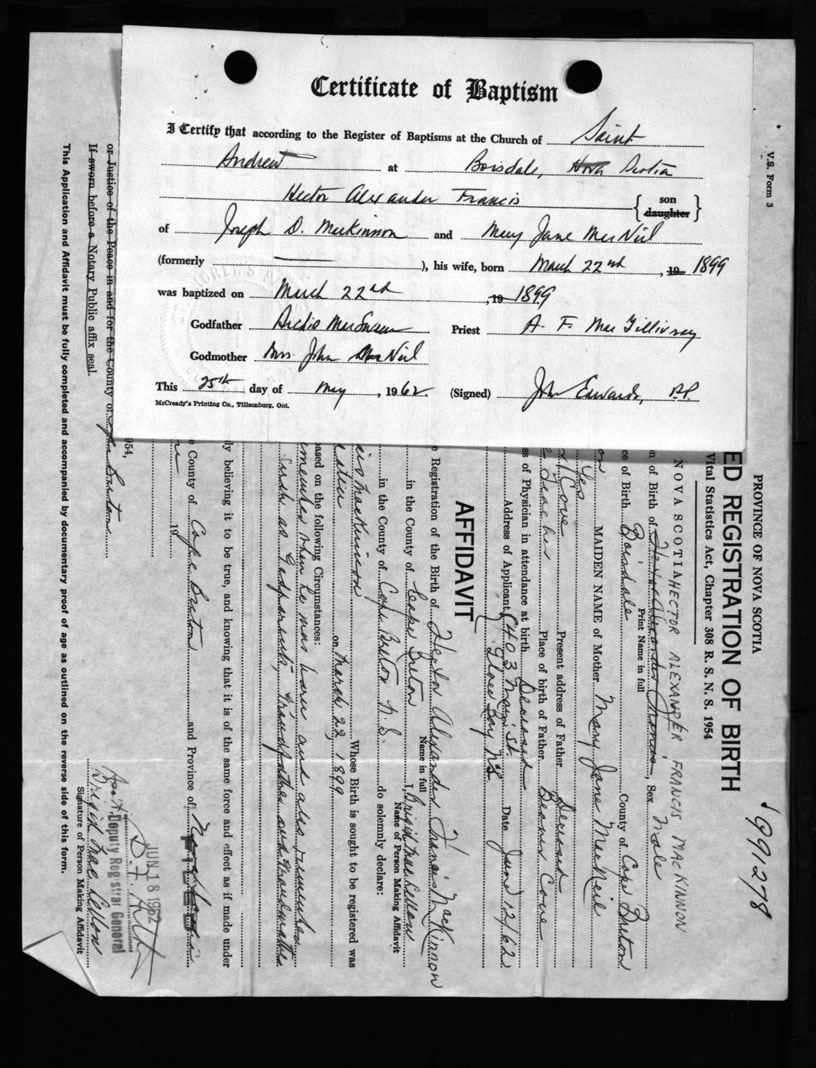 Certificate of Baptism
I Certify that according to the Register of Baptisms at the Church of Saint
Andrew at Boisdale, Nova Scotia
Hector Alexander Francis { son daughter }
of Joseph D. MacKinnon and Mary Jane MacNeil
(formerly ), his wife, born March 22nd, 19 1899
was baptized on March 22nd, 19 1899
Godfather Archie Priest A. F. MacGillivray
Godmother Mrs. John MacNeil
This 25th day of May, 1962. (Signed) John Edwards, P.P.
McCready's Printing Co., Tillsonburg, Ont.
V.S. Form 3
PROVINCE OF NOVA SCOTIA
'991278
ED REGISTRATION OF BIRTH
Vital Statistics Act, Chapter 308 R. S. N. S. 1954
NOVA SCOTIA HECTOR ALEXANDER FRANCIS MACKINNON
n of Birth of Hector Alexander Francis, Sex Male
Print Name in full
ce of Birth Boisdale County of Cape Breton
MAIDEN NAME of Mother Mary Jane MacNeil
Yes
Present address of Father Deceased
Cove
Place of birth of Father Beaver Cove
Teacher
ss of Physician in attendance at birth Deceased
Address of Applicant St. Glace Bay N.S. Date June 12/62
AFFIDAVIT
e Registration of the Birth of Hector Alexander Francis MacKinnon
Name in full
in the County of Cape Breton I, Brigid MacLellan
Name of Person Making Affidavit
in the County of Cape Breton N.S. do solemnly declare:
cis MacKinnon Whose Birth is sought to be registered was
on March 22, 1899
ased on the following Circumstances:
remember when he was born and also remember
such as Godparents, Grandfather and Grandmother
ly believing it to be true, and knowing that it is of the same force and effect as if made under
e County of Cape Breton and Province of Nova Scotia
19
1954,
JUN 18 1962
Deputy Registrar General
Brigid MacLellan
Signature of Person Making Affidavit
or Justice of the Peace in and for the County of Cape Breton
If sworn before a Notary Public affix seal.
This Application and Affidavit must be fully completed and accompanied by documentary proof of age as outlined on the reverse side of this form.